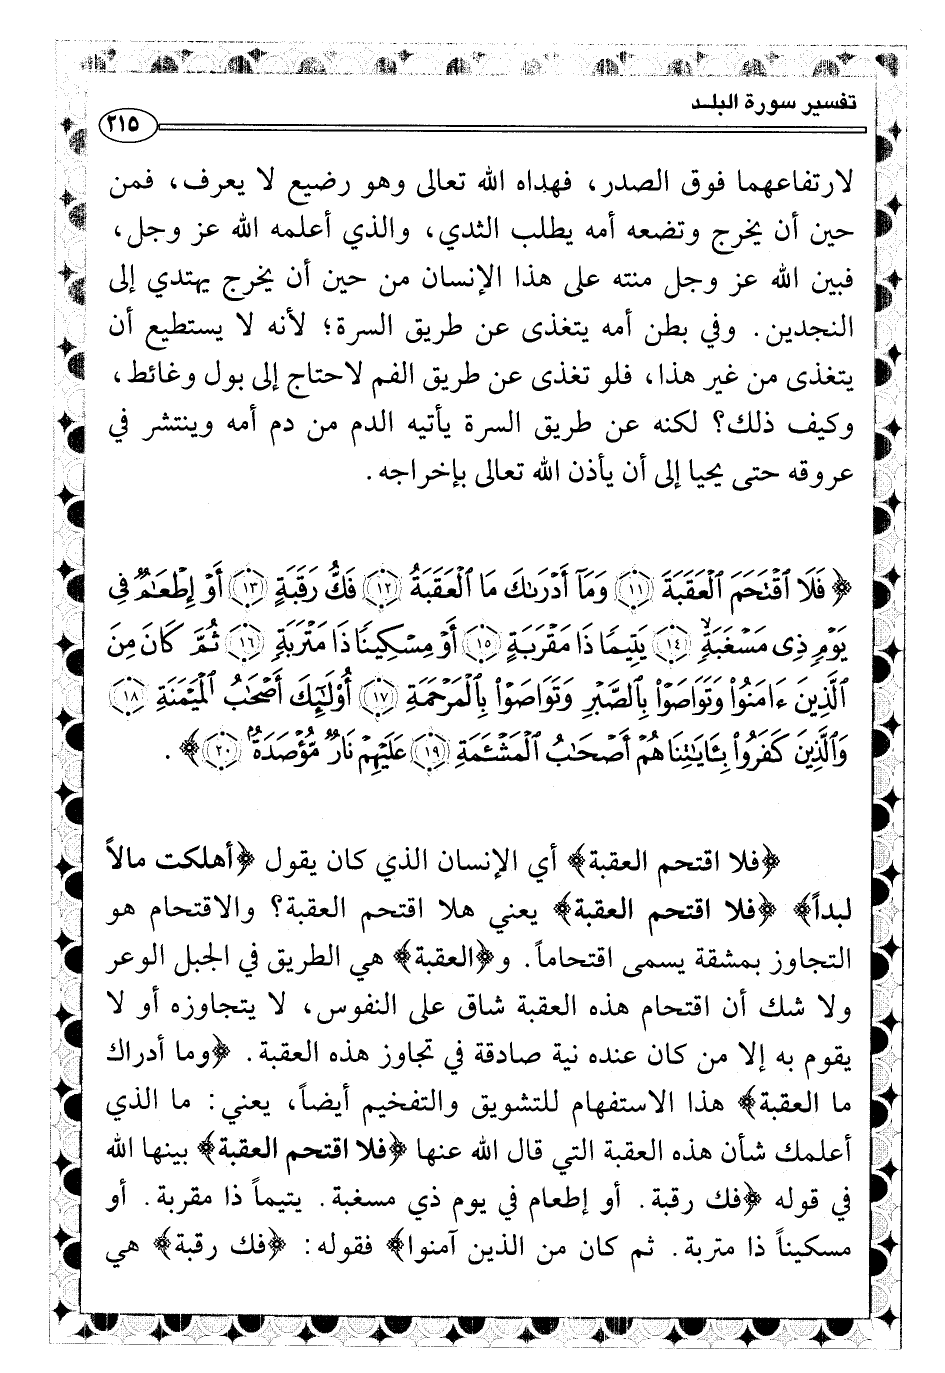 تفسير سورة البلـد
٢١٥
لارتفاعهما فوق الصدر، فهداه الله تعالى وهو رضيع لا يعرف، فمن
حين أن يخرج وتضعه أمه يطلب الثدي، والذي أعلمه الله عز وجل،
فبين الله عز وجل منته على هذا الإنسان من حين أن يخرج يهتدي إلى
النجدين. وفي بطن أمه يتغذى عن طريق السرة؛ لأنه لا يستطيع أن
يتغذى من غير هذا، فلو تغذى عن طريق الفم لاحتاج إلى بول وغائط،
وكيف ذلك؟ لكنه عن طريق السرة يأتيه الدم من دم أمه وينتشر في
عروقه حتى يحيا إلى أن يأذن الله تعالى بإخراجه.
﴿فَلَا ٱقْتَحَمَ ٱلْعَقَبَةَ ١١ وَمَآ أَدْرَىٰكَ مَا ٱلْعَقَبَةُ ١٢ فَكُّ رَقَبَةٍ ١٣ أَوْ إِطْعَٰمٌ فِى
يَوْمٍ ذِى مَسْغَبَةٍ ١٤ يَتِيمًا ذَا مَقْرَبَةٍ ١٥ أَوْ مِسْكِينًا ذَا مَتْرَبَةٍ ١٦ ثُمَّ كَانَ مِنَ
ٱلَّذِينَ ءَامَنُوا۟ وَتَوَاصَوْا۟ بِٱلصَّبْرِ وَتَوَاصَوْا۟ بِٱلْمَرْحَمَةِ ١٧ أُو۟لَٰٓئِكَ أَصْحَٰبُ ٱلْمَيْمَنَةِ ١٨
وَٱلَّذِينَ كَفَرُوا۟ بِـَٔايَٰتِنَا هُمْ أَصْحَٰبُ ٱلْمَشْـَٔمَةِ ١٩ عَلَيْهِمْ نَارٌ مُّؤْصَدَةٌۢ ٢٠﴾.
﴿فلا اقتحم العقبة﴾ أي الإنسان الذي كان يقول ﴿أهلكت مالاً
لبداً﴾ ﴿فلا اقتحم العقبة﴾ يعني هلا اقتحم العقبة؟ والاقتحام هو
التجاوز بمشقة يسمى اقتحاماً. و﴿العقبة﴾ هي الطريق في الجبل الوعر
ولا شك أن اقتحام هذه العقبة شاق على النفوس، لا يتجاوزه أو لا
يقوم به إلا من كان عنده نية صادقة في تجاوز هذه العقبة. ﴿وما أدراك
ما العقبة﴾ هذا الاستفهام للتشويق والتفخيم أيضاً، يعني: ما الذي
أعلمك شأن هذه العقبة التي قال الله عنها ﴿فلا اقتحم العقبة﴾ بينها الله
في قوله ﴿فك رقبة. أو إطعام في يوم ذي مسغبة. يتيماً ذا مقربة. أو
مسكيناً ذا متربة. ثم كان من الذين آمنوا﴾ فقوله: ﴿فك رقبة﴾ هي